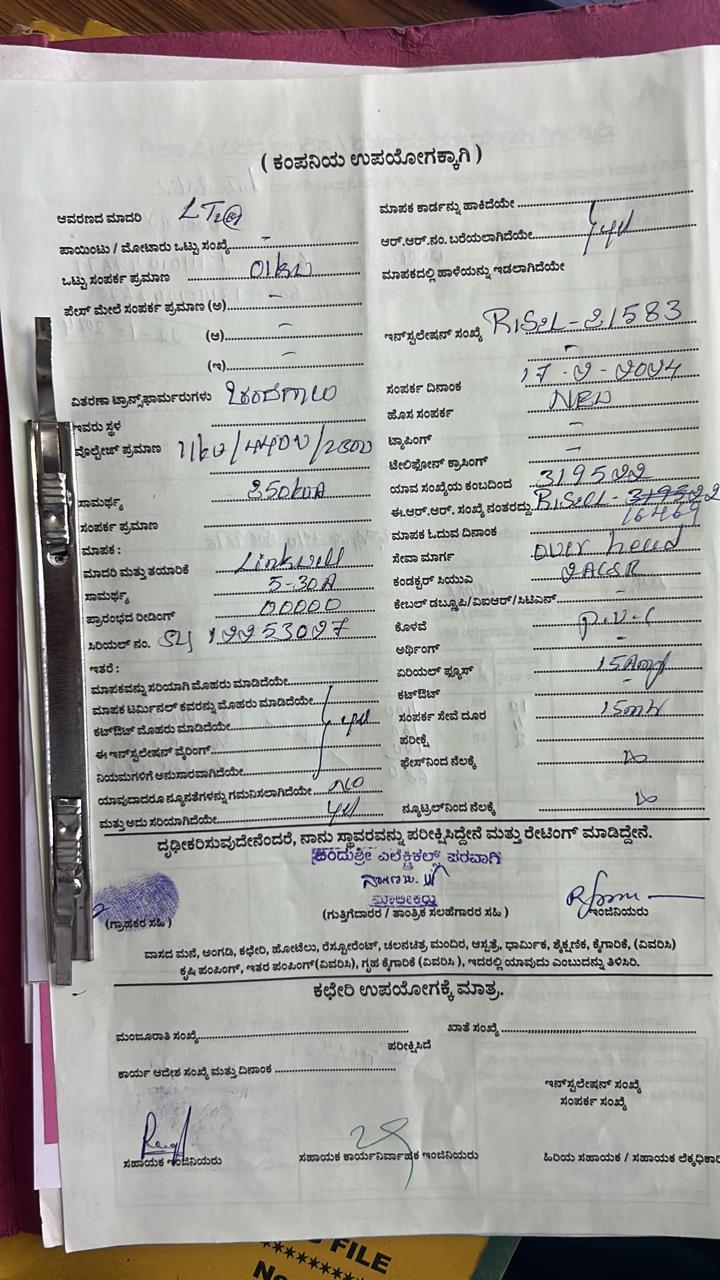 ( ಕಂಪನಿಯ ಉಪಯೋಗಕ್ಕಾಗಿ )
ಆವರಣದ ಮಾದರಿ LT2(a)
ಪಾಯಿಂಟು / ಮೋಟಾರು ಒಟ್ಟು ಸಂಖ್ಯೆ -
ಒಟ್ಟು ಸಂಪರ್ಕ ಪ್ರಮಾಣ 01kW
ಫೇಸ್ ಮೇಲೆ ಸಂಪರ್ಕ ಪ್ರಮಾಣ (ಅ) -
(ಆ) -
(ಇ) -
ವಿತರಣಾ ಟ್ರಾನ್ಸ್‌ಫಾರ್ಮರುಗಳು
ಇವರು ಸ್ಥಳ
ವೊಲ್ಟೇಜ್ ಪ್ರಮಾಣ 11kv/440V/230V
ಸಾಮರ್ಥ್ಯ 250kVA
ಸಂಪರ್ಕ ಪ್ರಮಾಣ
ಮಾಪಕ :
ಮಾದರಿ ಮತ್ತು ತಯಾರಿಕೆ Linkwell
ಸಾಮರ್ಥ್ಯ 5-30A
ಪ್ರಾರಂಭದ ರೀಡಿಂಗ್ 00000
ಸಿರಿಯಲ್ ನಂ.
ಇತರೆ :
ಮಾಪಕವನ್ನು ಸರಿಯಾಗಿ ಮೊಹರು ಮಾಡಿದೆಯೇ
ಮಾಪಕ ಟರ್ಮಿನಲ್ ಕವರನ್ನು ಮೊಹರು ಮಾಡಿದೆಯೇ
ಕಟ್‌ಔಟ್ ಮೊಹರು ಮಾಡಿದೆಯೇ yes
ಈ ಇನ್‌ಸ್ಟಲೇಷನ್ ವೈರಿಂಗ್
ನಿಯಮಗಳಿಗೆ ಅನುಸಾರವಾಗಿದೆಯೇ
ಯಾವುದಾದರೂ ನ್ಯೂನತೆಗಳನ್ನು ಗಮನಿಸಲಾಗಿದೆಯೇ NO
ಮತ್ತು ಅದು ಸರಿಯಾಗಿದೆಯೇ yes
ಮಾಪಕ ಕಾರ್ಡನ್ನು ಹಾಕಿದೆಯೇ
ಆರ್.ಆರ್.ನಂ. ಬರೆಯಲಾಗಿದೆಯೇ yes
ಮಾಪಕದಲ್ಲಿ ಹಾಳೆಯನ್ನು ಇಡಲಾಗಿದೆಯೇ
ಇನ್‌ಸ್ಟಲೇಷನ್ ಸಂಖ್ಯೆ
-
ಸಂಪರ್ಕ ದಿನಾಂಕ 17-2-2024
ಹೊಸ ಸಂಪರ್ಕ NEW
ಟ್ಯಾಪಿಂಗ್ -
ಟೆಲಿಫೋನ್ ಕ್ರಾಸಿಂಗ್ -
ಯಾವ ಸಂಖ್ಯೆಯ ಕಂಬದಿಂದ 319522
ಈ.ಆರ್.ಆರ್. ಸಂಖ್ಯೆ ನಂತರದ್ದು 16469
ಮಾಪಕ ಓದುವ ದಿನಾಂಕ
ಸೇವಾ ಮಾರ್ಗ over head
ಕಂಡಕ್ಟರ್ ಸಿಯುಎ 2ACSR
ಕೇಬಲ್ ಡಬ್ಲ್ಯೂಪಿ/ವಿಐಆರ್/ಸಿಟಿಎಸ್ -
ಕೊಳವೆ P.V.C
ಅರ್ಥಿಂಗ್ -
ಏರಿಯಲ್ ಫ್ಯೂಸ್ 15Amp
ಕಟ್‌ಔಟ್
ಸಂಪರ್ಕ ಸೇವೆ ದೂರ 15mtr
ಪರೀಕ್ಷೆ
ಫೇಸ್‌ನಿಂದ ನೆಲಕ್ಕೆ
ನ್ಯೂಟ್ರಲ್‌ನಿಂದ ನೆಲಕ್ಕೆ
ದೃಢೀಕರಿಸುವುದೇನೆಂದರೆ, ನಾನು ಸ್ಥಾವರವನ್ನು ಪರೀಕ್ಷಿಸಿದ್ದೇನೆ ಮತ್ತು ರೇಟಿಂಗ್ ಮಾಡಿದ್ದೇನೆ.
ಎಲೆಕ್ಟ್ರಿಕಲ್ಸ್ ಪರವಾಗಿ
ಮಾಲೀಕರು
(ಗ್ರಾಹಕರ ಸಹಿ )
(ಗುತ್ತಿಗೆದಾರರ / ತಾಂತ್ರಿಕ ಸಲಹೆಗಾರರ ಸಹಿ )
ಇಂಜಿನಿಯರು
ವಾಸದ ಮನೆ, ಅಂಗಡಿ, ಕಛೇರಿ, ಹೋಟೆಲು, ರೆಸ್ಟೋರೆಂಟ್, ಚಲನಚಿತ್ರ ಮಂದಿರ, ಆಸ್ಪತ್ರೆ, ಧಾರ್ಮಿಕ, ಶೈಕ್ಷಣಿಕ, ಕೈಗಾರಿಕೆ, (ವಿವರಿಸಿ)
ಕೃಷಿ ಪಂಪಿಂಗ್, ಇತರ ಪಂಪಿಂಗ್(ವಿವರಿಸಿ), ಗೃಹ ಕೈಗಾರಿಕೆ (ವಿವರಿಸಿ ), ಇದರಲ್ಲಿ ಯಾವುದು ಎಂಬುದನ್ನು ತಿಳಿಸಿರಿ.
ಕಛೇರಿ ಉಪಯೋಗಕ್ಕೆ ಮಾತ್ರ.
ಮಂಜೂರಾತಿ ಸಂಖ್ಯೆ
ಖಾತೆ ಸಂಖ್ಯೆ
ಪರೀಕ್ಷಿಸಿದೆ
ಕಾರ್ಯ ಆದೇಶ ಸಂಖ್ಯೆ ಮತ್ತು ದಿನಾಂಕ
ಇನ್‌ಸ್ಟಲೇಷನ್ ಸಂಖ್ಯೆ
ಸಂಪರ್ಕ ಸಂಖ್ಯೆ
ಸಹಾಯಕ ಇಂಜಿನಿಯರು
ಸಹಾಯಕ ಕಾರ್ಯನಿರ್ವಾಹಕ ಇಂಜಿನಿಯರು
ಹಿರಿಯ ಸಹಾಯಕ / ಸಹಾಯಕ ಲೆಕ್ಕಾಧಿಕಾರಿ
FILE
No